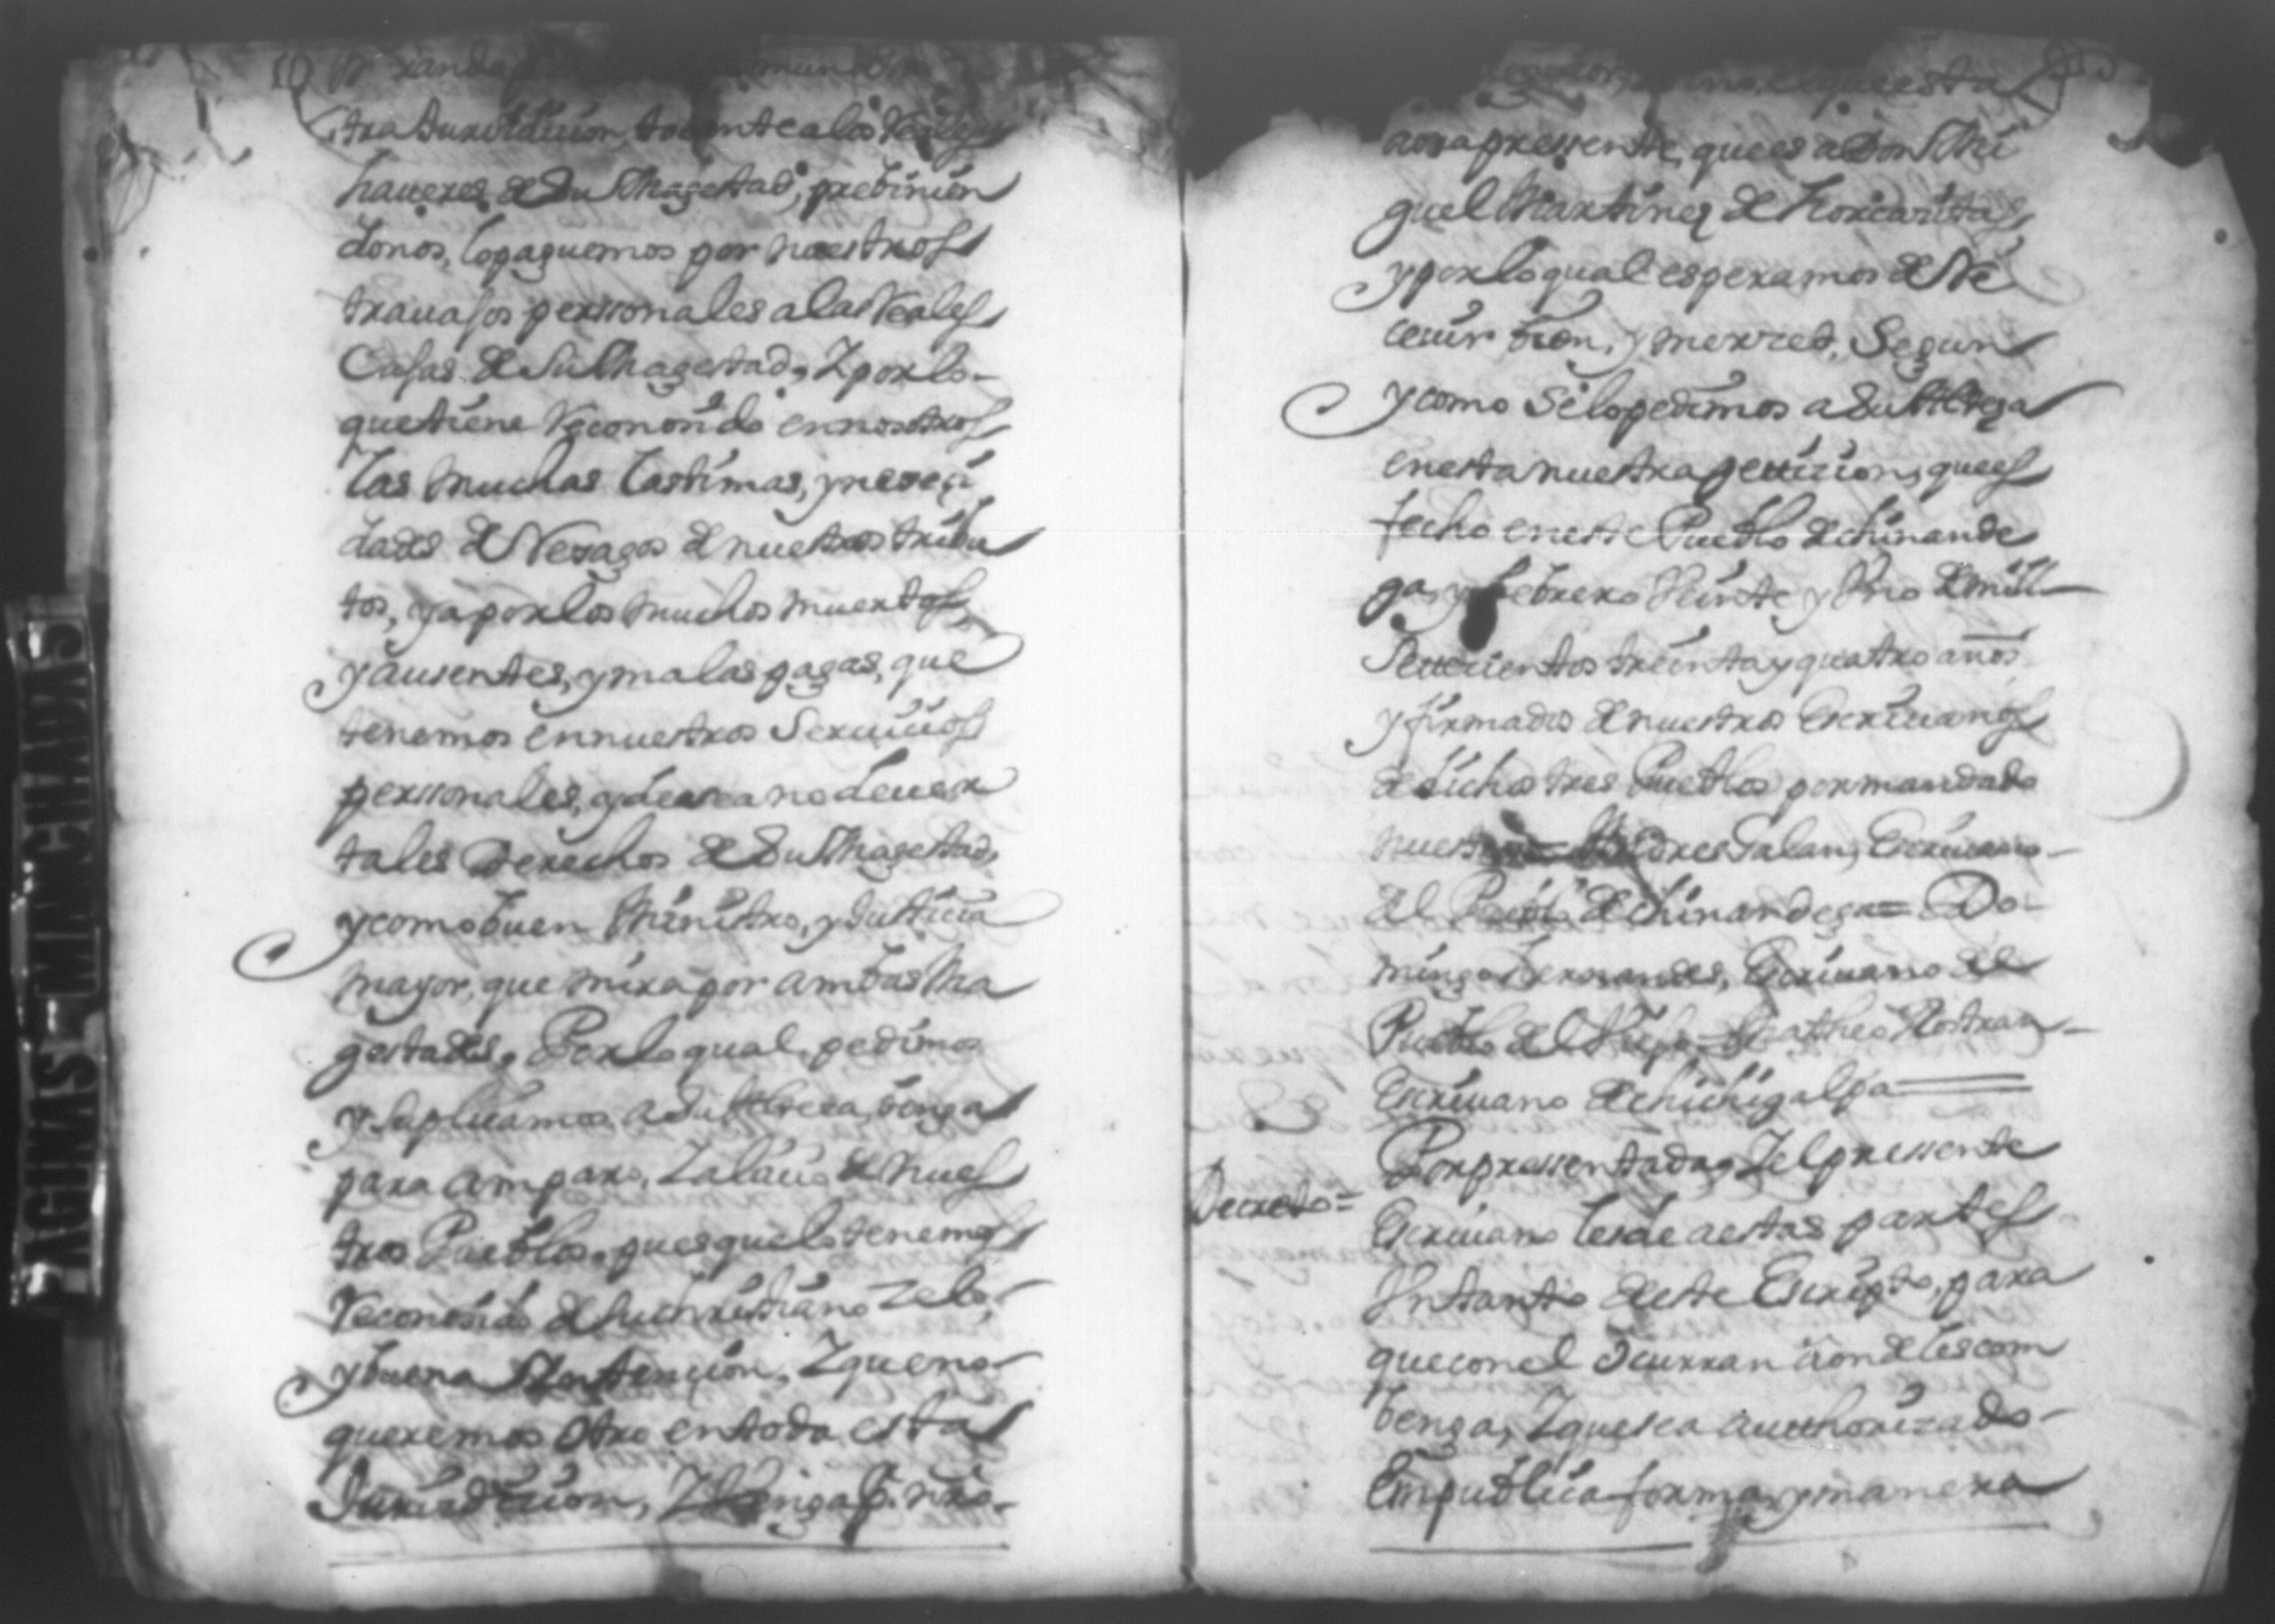 tra Jurisdiccion, tocante a los Reales
haueres de Su Magestad, prebinien
donos, lo paguemos por nuestros
trauajos perssonales a las Reales
Casas de Su Magestad, Y por lo
que tiene Reconosido en nosotros
las muchas lastimas, y neseçi
dades de Rezagos de nuestros tribu
tos, ya por los muchos muertos
y ausentes, y malas pagas, que
tenemos en nuestros Seruicios
perssonales, y desea no deuer
tales Derechos de Su Magestad,
y como buen Ministro, y Justicia
mayor, que mira por ambas Ma
gestades, Por lo qual, pedimos
y Suplicamos a Su Alteza, benga
para amparo, Y alauio de nues
tros Pueblos, pues que lo tenemos
Reconosido de su christiano zelo,
y buena Yntencion, Y que no
queremos otro en toda esta
Jurisdiccion, Y benga p. nro.
esta
aora pressente, que es a Don Mi
guel Martinez de
y por lo qual esperamos Re
ceuir bien, y merced, Segun
y como Se lo pedimos a Su Alteza
en esta nuestra peticion, que es
fecho en este Pueblo de chinande
ga, y febrero Veinte y Vno de mill
Setecientos treinta y quatro años
y firmados de nuestros Escriuanos
de dichos tres Pueblos por mandado
nuestro Galan, Escriuano
del Pueblo de chinandega = Do
mingo Hernandes, Escriuano del
Pueblo del Viejo = Matheo
Escriuano de chichigalpa =
Decreto =
Por pressentada, Y el pressente
Escriuano les de a estas partes
Vn tanto de este Escripto, para
que con el Ocurran a onde les com
benga, Y que sea authorizado
En publica forma, y manera
PAGINAS MANCHADAS